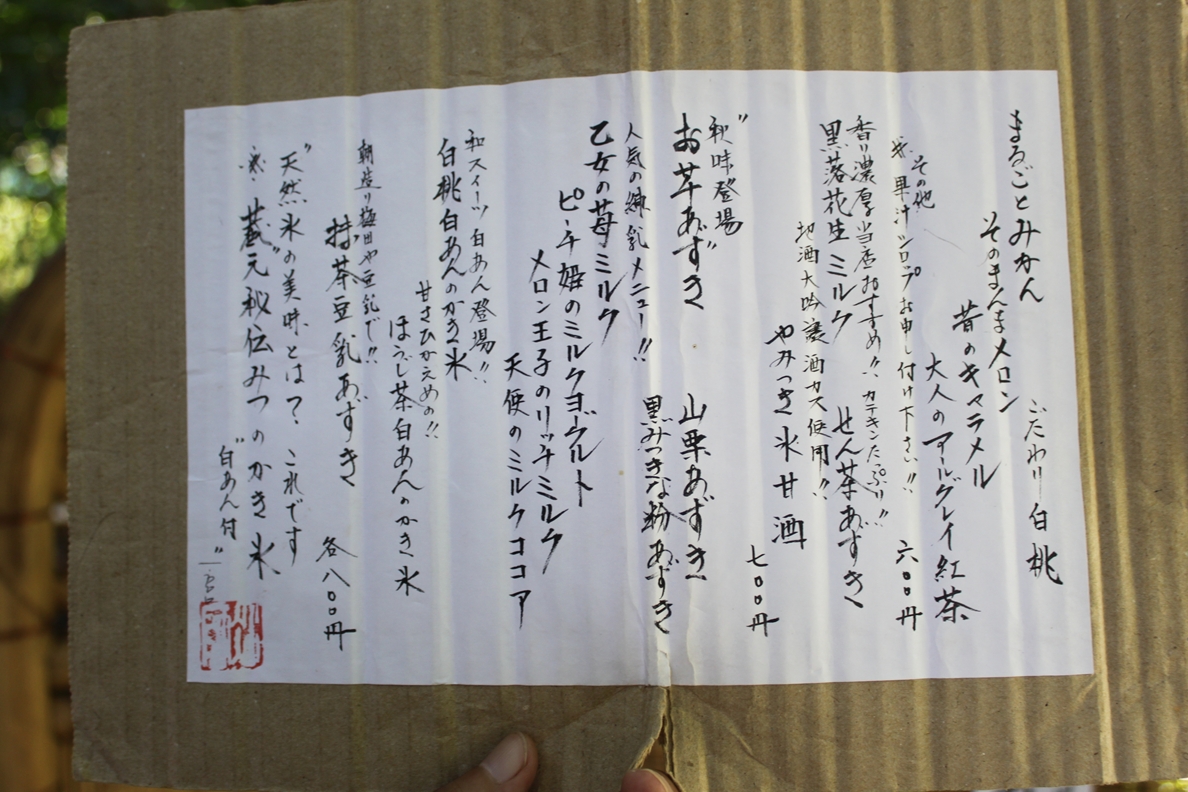 まるごとみかん
こだわり白桃
そのまんまメロン
昔のキャラメル
大人のアールグレイ紅茶
その他
果汁シロップお申し付け下さい!! 六〇〇円
香り濃厚当店おすすめ!! カテキンたっぷり!!
黒落花生ミルク
せん茶あずき
地酒大吟醸酒カス使用!!
やみつき氷甘酒
七〇〇円
"秋味登場"
お芋あずき
山栗あずき
黒みつきな粉あずき
人気の練乳メニュー!!
乙女の苺ミルク
ピーチ姫のミルクヨーグルト
メロン王子のリッチミルク
天使のミルクココア
和スイーツ白あん登場!!
白桃白あんのかき氷
甘さひかえめの!!
ほうじ茶白あんのかき氷
朝造り梅田や豆乳で!!
抹茶豆乳あずき
各八〇〇円
"天然氷の美味とは? これです
"蔵"元秘伝みつのかき氷
"白あん付"